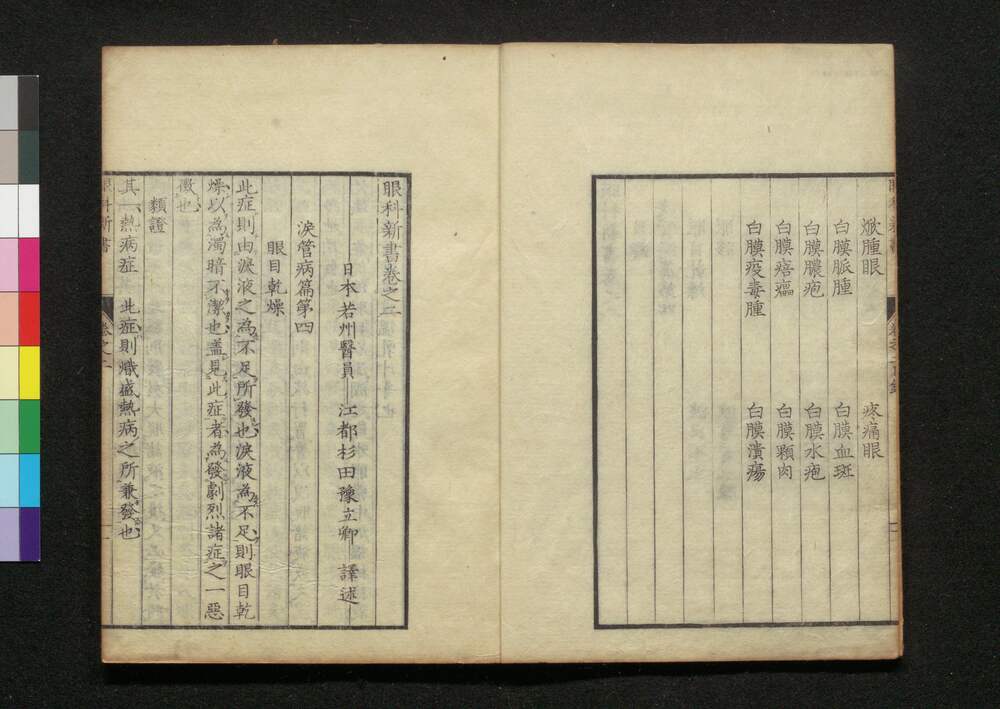 焮腫眼　疼痛眼
白膜脈腫　白膜血斑
白膜膿疱　白膜水疱
白膜瘜瘤　白膜顆肉
白膜疫毒腫　白膜潰瘍
眼科新書卷之二
日本若州醫員　江都杉田豫立卿　譯述
淚管病篇第四
眼目乾燥
此症則由淚液之為不足所發也淚液為不足則眼目乾
燥以為濁暗不潔也蓋見此症者為發劇烈諸症之一惡
徵也
類證
其一熱病症　此症則熾盛熱病之所兼發也
眼科新書
卷之二